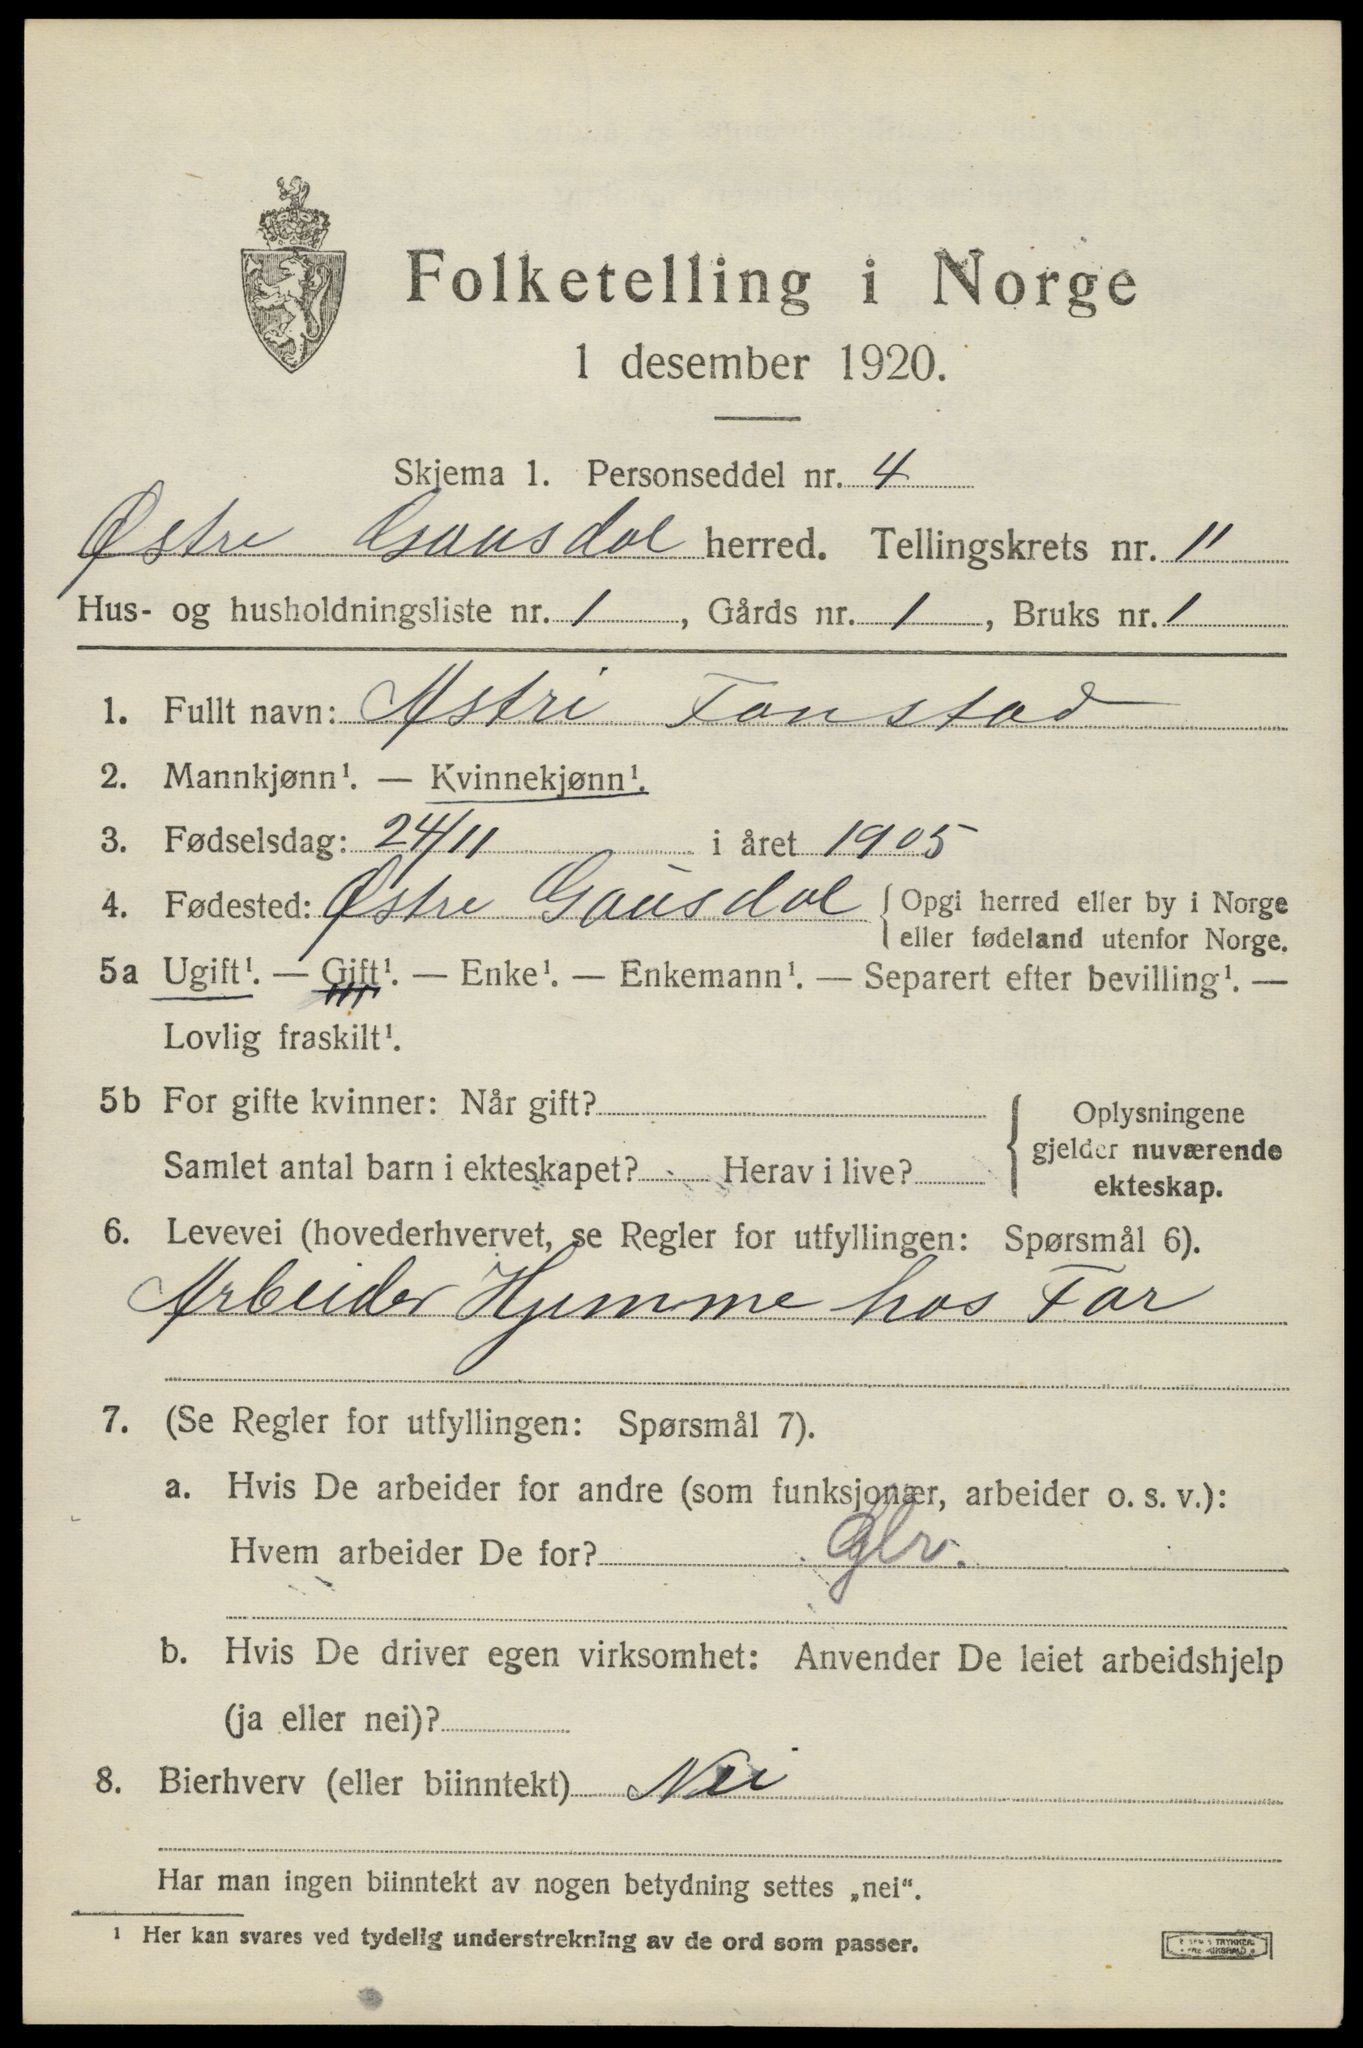 Folketelling i Norge
1 desember 1920.
Skjema 1. Personseddel nr. 4
Østre Gausdal herred. Tellingskrets nr. 11
Hus- og husholdningsliste nr. 1, Gårds nr. 1, Bruks nr. 1
1. Fullt navn: Astri Fonstad
2. Mannkjønn¹. — Kvinnekjønn¹.
3. Fødselsdag: 24/11 i året 1905
4. Fødested: Østre Gausdal { Opgi herred eller by i Norge
eller fødeland utenfor Norge.
5a Ugift¹. — Gift¹. — Enke¹. — Enkemann¹. — Separert efter bevilling¹. —
Lovlig fraskilt¹.
5b For gifte kvinner: Når gift?
Samlet antal barn i ekteskapet? Herav i live?
{ Oplysningene
gjelder nuværende
ekteskap.
6. Levevei (hovederhvervet, se Regler for utfyllingen: Spørsmål 6).
Arbeider Hjemme hos Far
7. (Se Regler for utfyllingen: Spørsmål 7).
a. Hvis De arbeider for andre (som funksjonær, arbeider o. s. v.):
Hvem arbeider De for?
b. Hvis De driver egen virksomhet: Anvender De leiet arbeidshjelp
(ja eller nei)?
8. Bierhverv (eller biinntekt) Nei
Har man ingen biinntekt av nogen betydning settes „nei“.
¹ Her kan svares ved tydelig understrekning av de ord som passer.